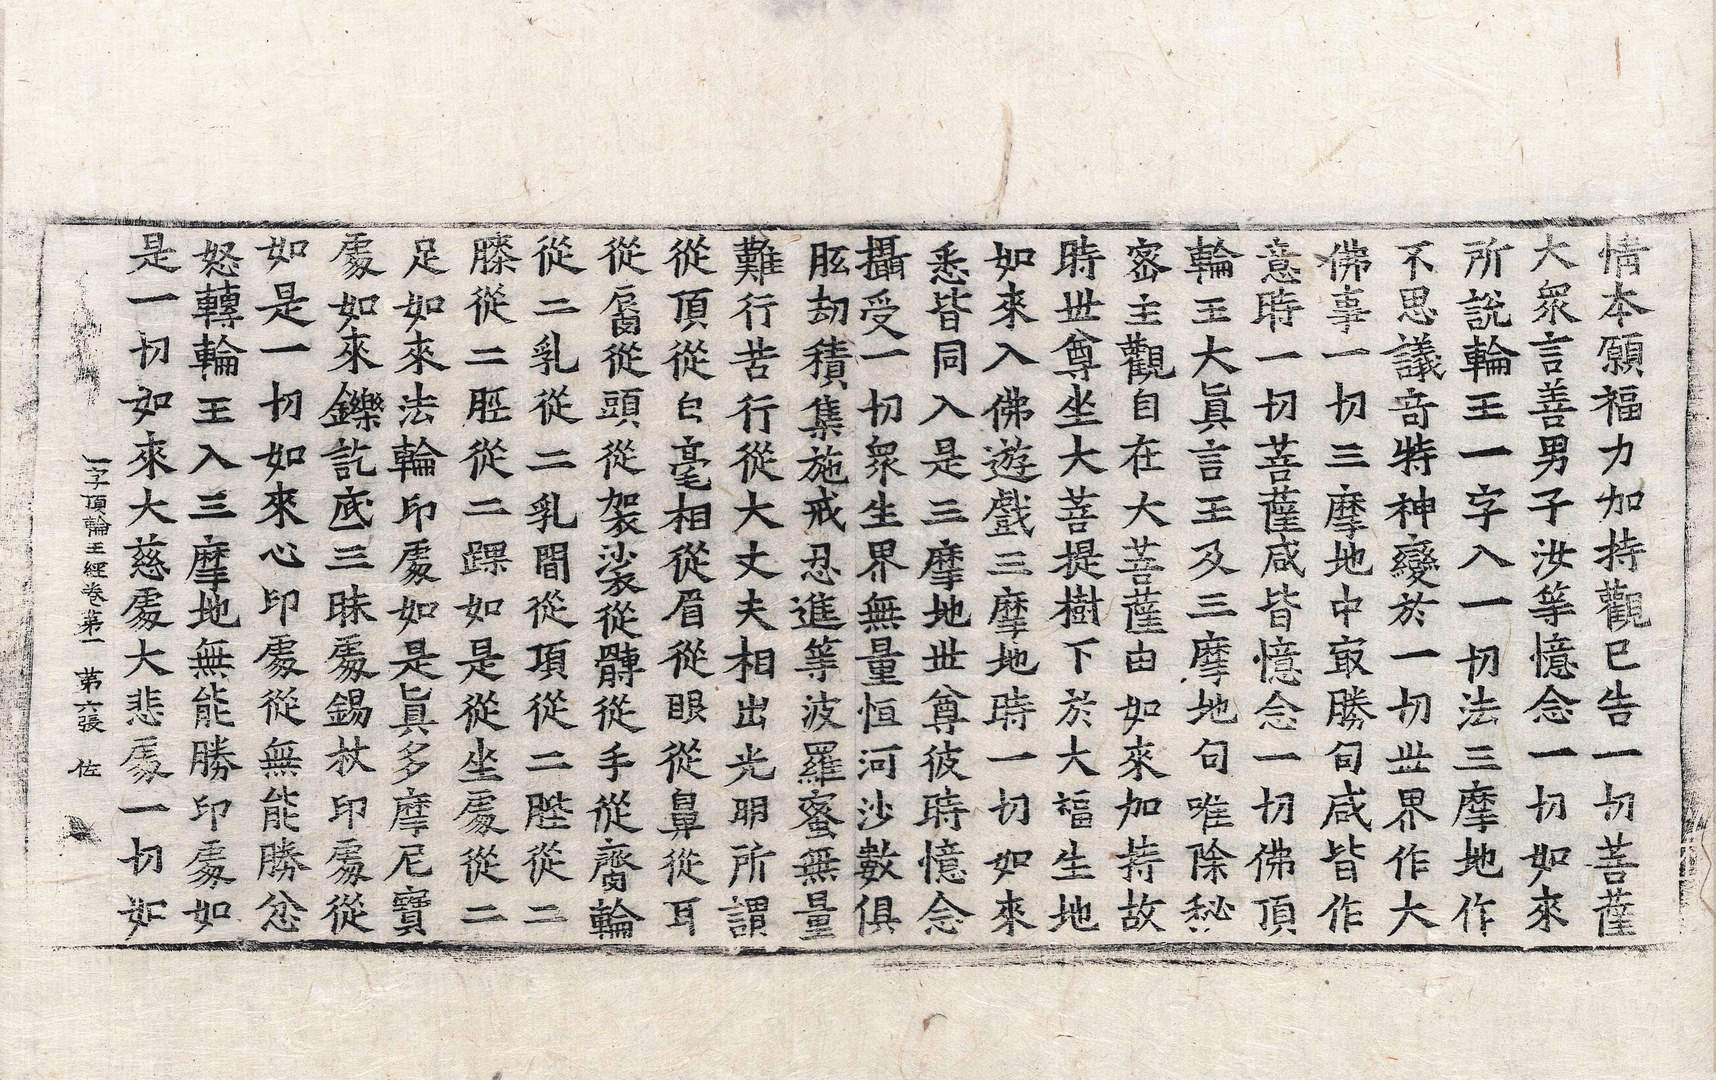 情本願福力加持觀已告一切菩薩
大衆言善男子汝等憶念一切如來
所說輪王一字入一切法三摩地作
不思議奇特神變於一切世界作大
佛事一切三摩地中冣勝句咸皆作
意時一切菩薩咸皆憶念一切佛頂
輪王大眞言王及三摩地句唯除秘
密主觀自在大菩薩由如來加持故
時世尊坐大菩提樹下於大福生地
如來入佛遊戲三摩地時一切如來
悉皆同入是三摩地世尊彼時憶念
攝受一切衆生界無量恒河沙數俱
胝劫積集施戒忍進等波羅蜜無量
難行苦行從大丈夫相出光明所謂
從頂從白毫相從眉從眼從鼻從耳
從脣從頭從袈裟從髆從手從臍輪
從二乳從二乳間從項從二䏶從二
膝從二脛從二踝如是從坐處從二
足如來法輪印處如是眞多摩尼寶
處如來鑠訖底三昧處錫杖印處從
如是一切如來心印處從無能勝忿
怒轉輪王入三摩地無能勝印處如
是一切如來大慈處大悲處一切如
一字頂輪王經卷第一 第六張 佐